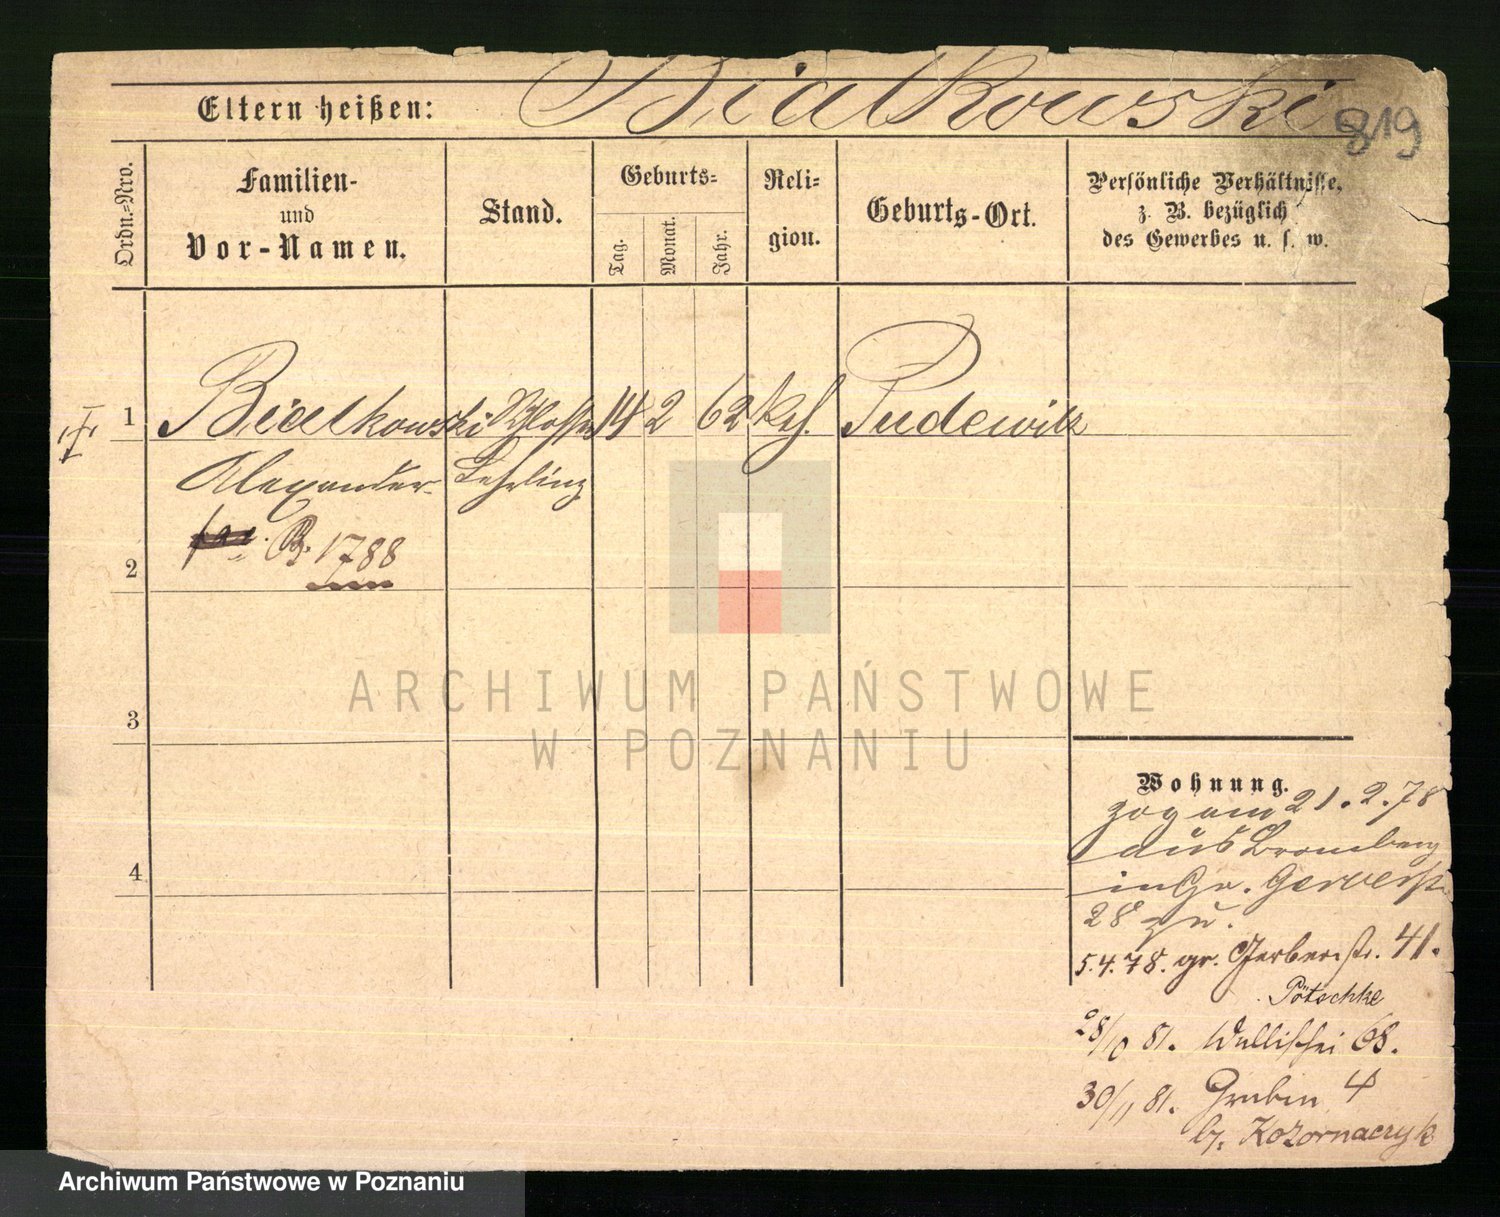 Eltern heißen: Bialkowski
819
Ordn.-Nro.
Familien-
und
Vor-Namen.
Stand.
Geburts-
Tag.
Monat.
Jahr.
Reli-
gion.
Geburts-Ort.
Persönliche Verhältnisse,
z. B. bezüglich
des Gewerbes u. s. w.
1 Bialkowski Schlosser 14 2 62 kth. Pudewitz
Alexander Lehrling
B. 1788
2
3
4
Wohnung.
zog am 21.2.78
aus Bromberg
in Gr. Gerberstr.
28 zu.
5.4.78. gr. Gerberstr. 41.
Pötschke
28/10 81. Wallischei 68.
30/11 81. Graben 4
b.
ARCHIWUM PAŃSTWOWE
W POZNANIU
Archiwum Państwowe w Poznaniu